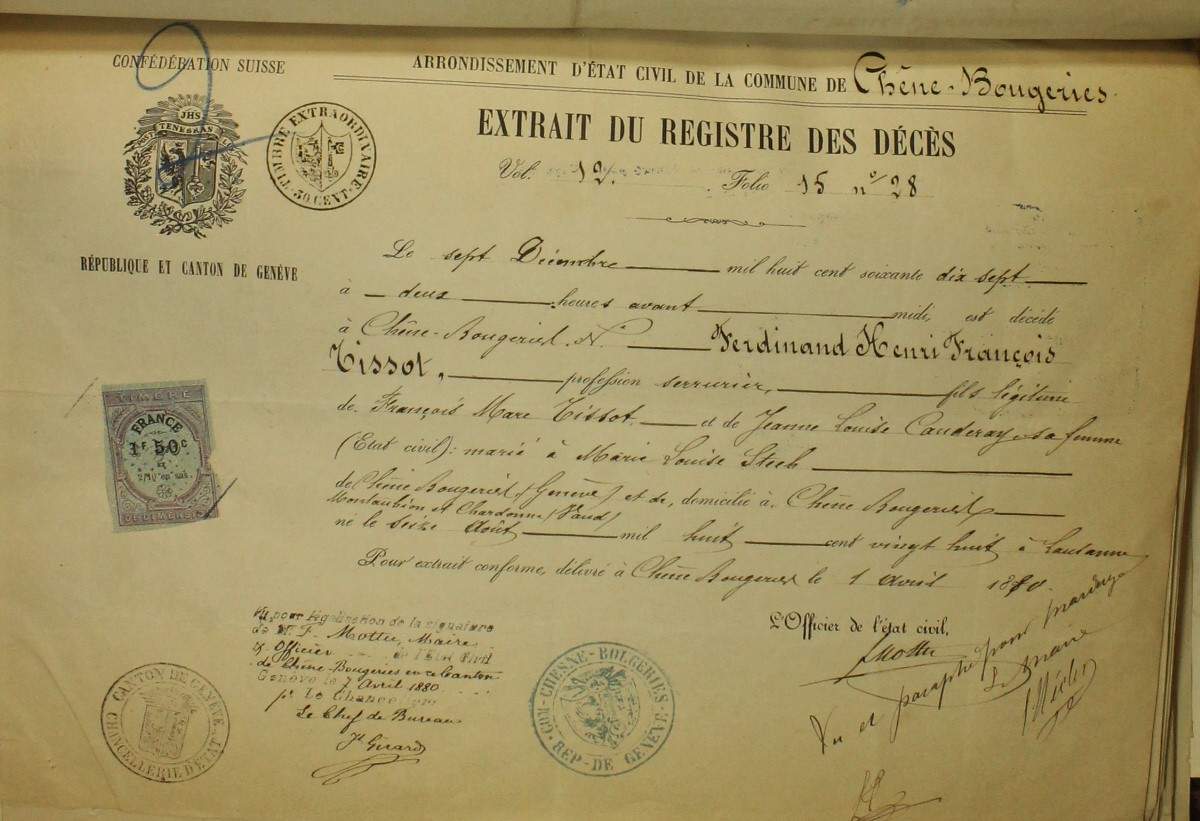 CONFÉDÉRATION SUISSE
ARRONDISSEMENT D'ÉTAT CIVIL DE LA COMMUNE DE Chêne-Bougeries
JHS
POST TENEBRAS
TIMBRE EXTRAORDINAIRE
30 CENT.
EXTRAIT DU REGISTRE DES DÉCÈS
Vol. 12. Folio 15 nº 28
RÉPUBLIQUE ET CANTON DE GENÈVE
Le sept Décembre mil huit cent soixante dix sept
à deux heures avant midi, est décédé
à Chêne-Bougeries. Ferdinand Henri François
Tissot, profession serrurier, fils légitime
de François Marc Tissot et de Jeanne Louise Cauderay sa femme
(Etat civil): marié à Marie Louise Steeb
de Chêne Bougeries (Genève) et de, domicilié à Chêne Bougeries
Montaubion et Chardonne (Vaud)
né le seize Août mil huit cent vingt huit à Lausanne
Pour extrait conforme, délivré à Chêne Bougeries le 1 avril 1880.
TIMBRE
FRANCE
1F 50C
2/10 en sus
DE DIMENSION
L'Officier de l'état civil,
Vu, pour légalisation de la signature
de M. F. Mottu, Maire
& Officier de l'Etat Civil
de Chêne-Bougeries en ce Canton
Genève le 7 Avril 1880
pr Le Chancelier
Le Chef de Bureau
Vu et paraphé pour
Le Maire
CANTON DE GENÈVE
CHANCELLERIE D'ÉTAT
COM. CHESNE-BOUGERIES
REP. DE GENÈVE